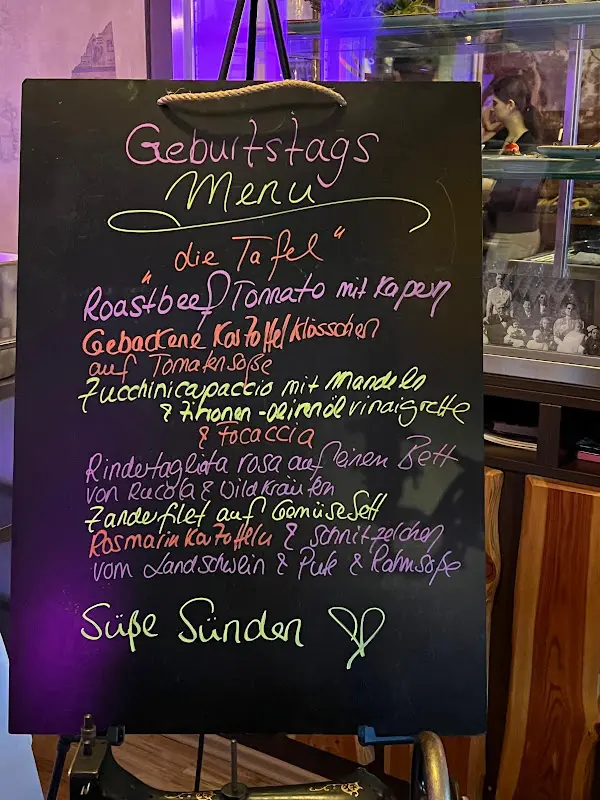 Geburtstags
Menu
"die Tafel"
Roastbeef Tonnato mit Kapern
Gebackene Kartoffelklösschen
auf Tomatensoße
Zucchinicapaccio mit Mandeln
& Zitronen-Olivenöl vinaigrette
& Focaccia
Rindertagliata rosa auf einen Bett
von Rucola & Wildkräuten
Zanderfilet auf Gemüsebett
Rosmarin Kartoffeln & Schnitzelchen
vom Landschwein & Pute & Rahmsoße
Süße Sünden